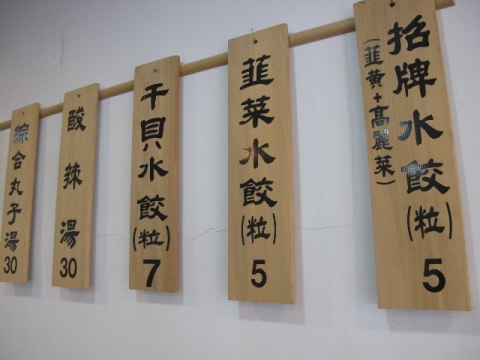 招牌水餃(粒)5
(韮黃+高麗菜)
韮菜水餃(粒)5
干貝水餃(粒)7
酸辣湯30
綜合丸子湯30